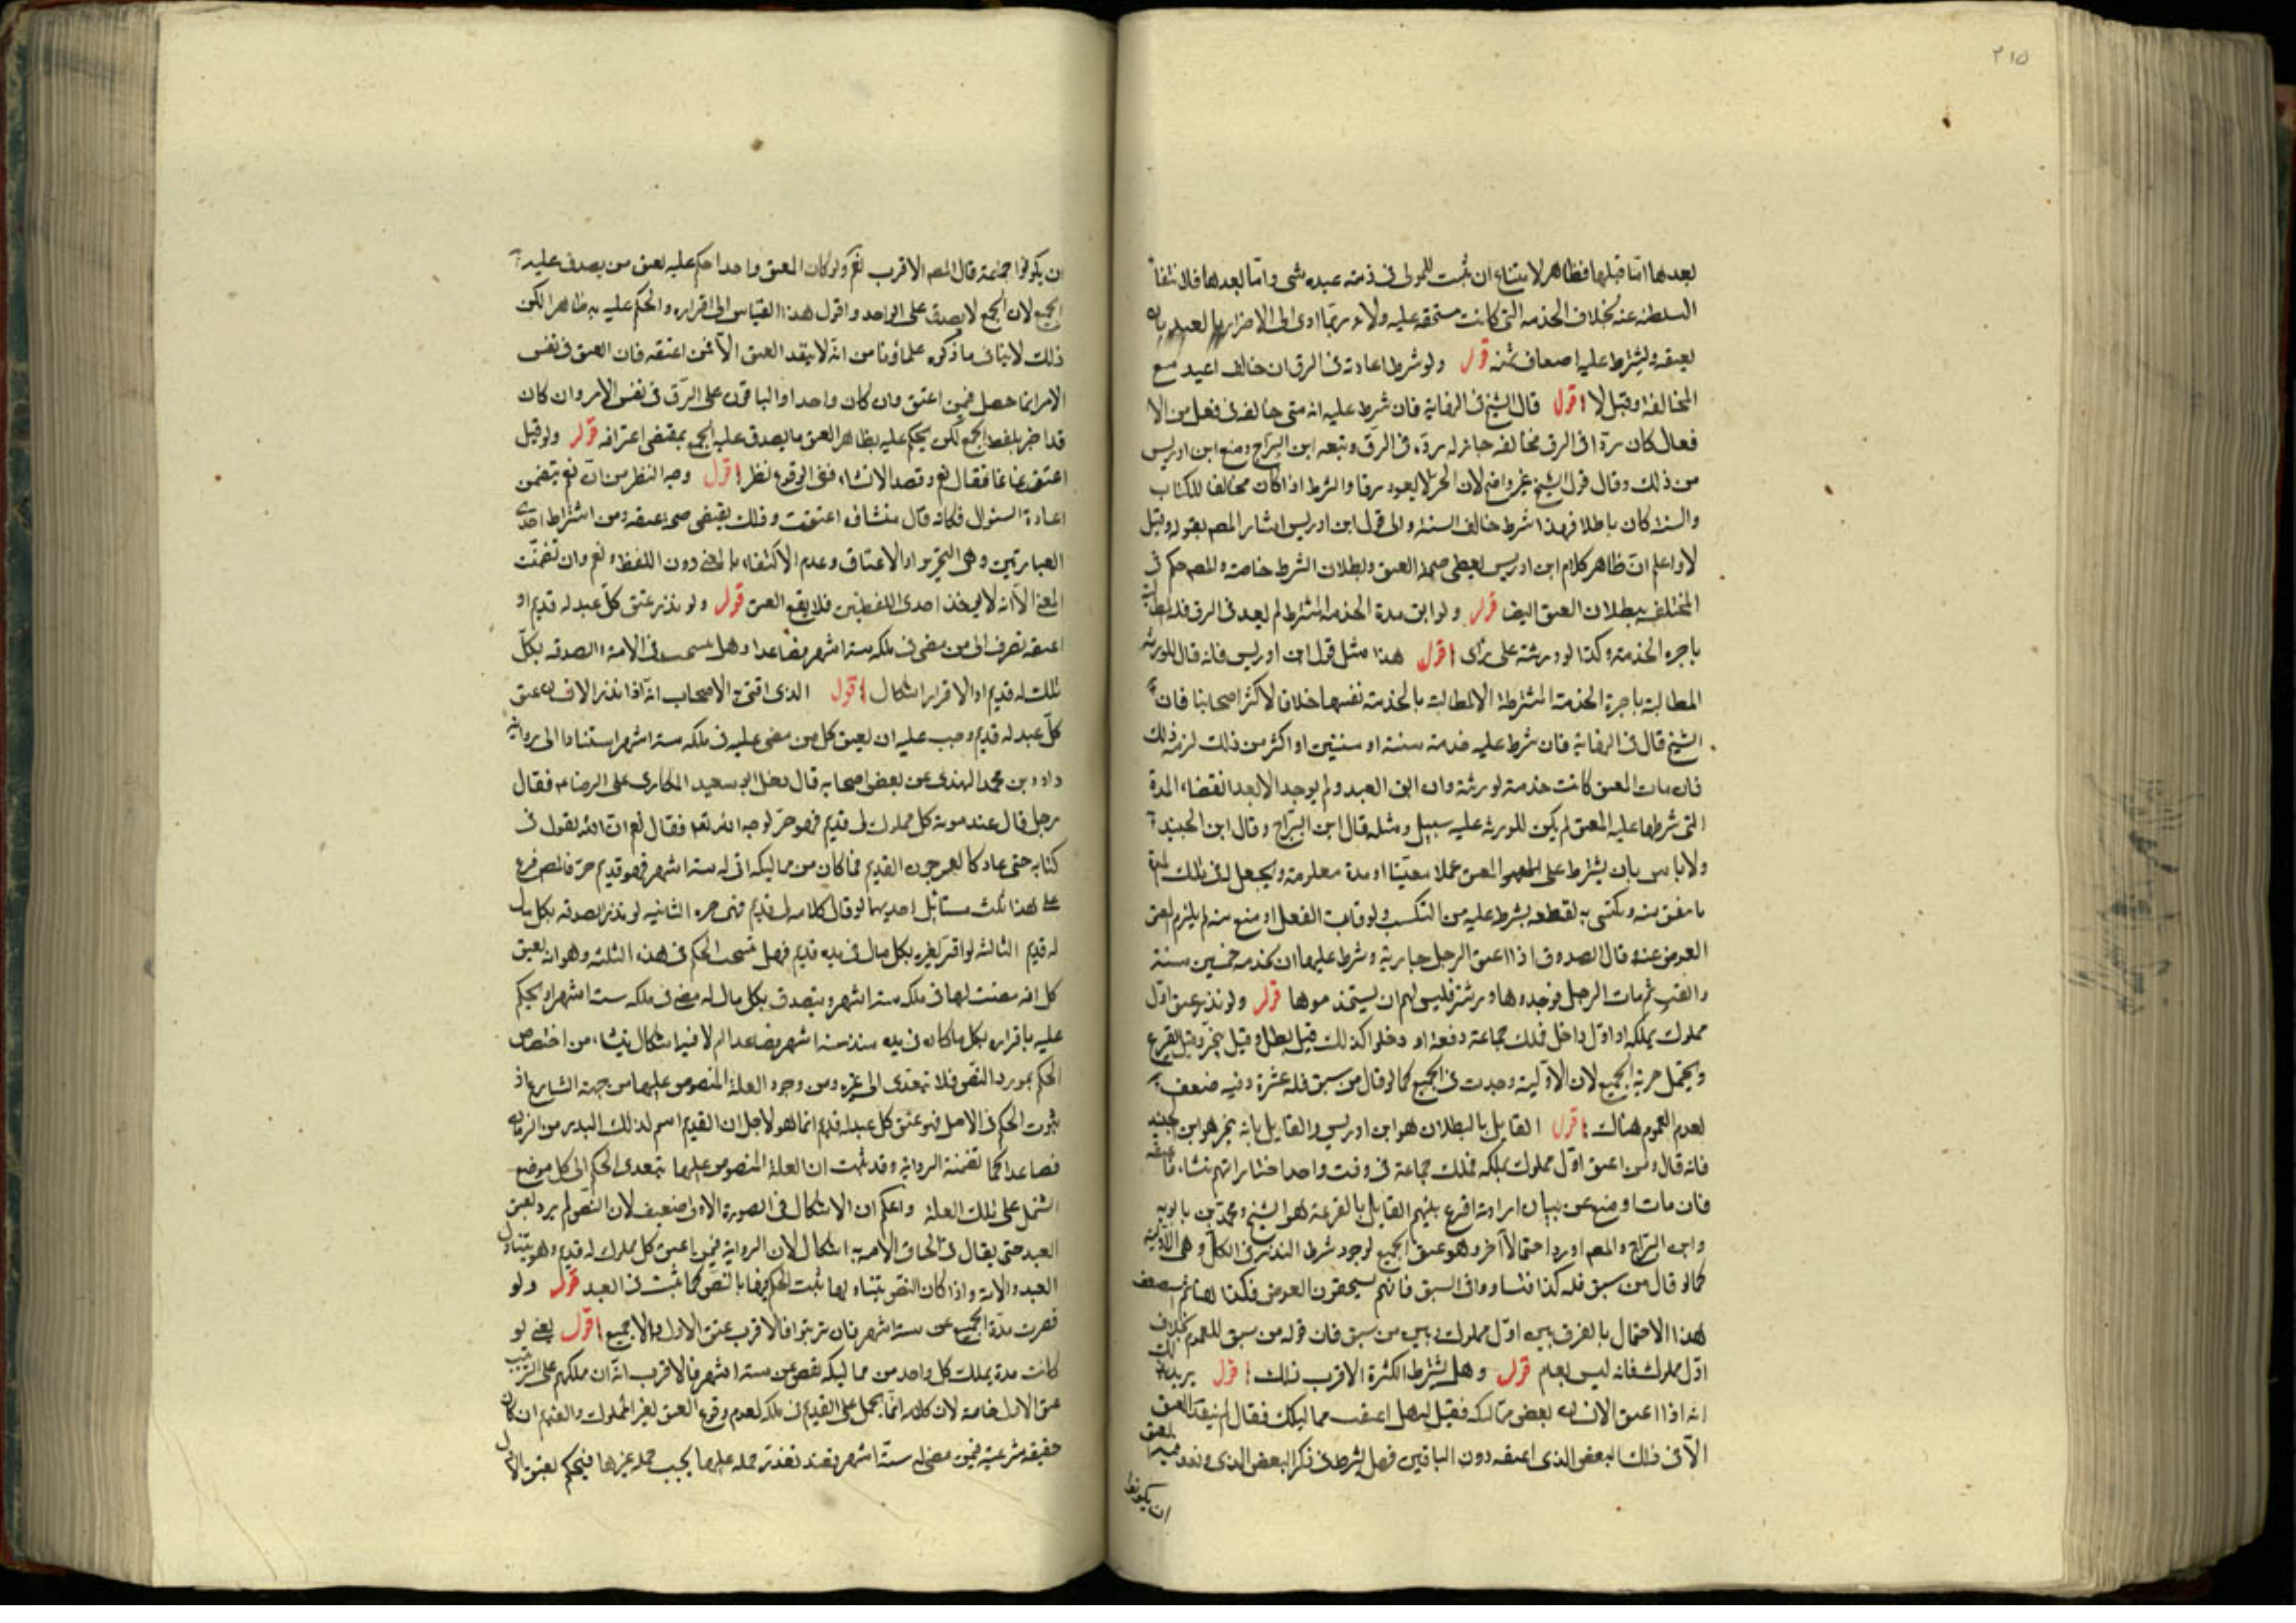 ٢١٥
بعدها اما قبلها فظاهر لامتناع ان يثبت للمولى فى ذمة عبده شى واما بعدها فلانتفا
السلطنه عنه بخلاف الخدمه التى كانت مستحقه عليه ولانه ربما ادى الى الاضرار بالعبد بان
يعتقه ويشترط عليه اضعاف ثمنه قوله ولو شرط اعادته فى الرق ان خالف اعيد مع
المخالفة وقيل لا اقول قال الشيخ فى النهاية فان شرط عليه انه متى خالفه فى فعل من الا
فعال كان ردا فى الرق فخالفه جاز له رده فى الرق وتبعه ابن البراج ومنع ابن ادريس
من ذلك وقال قول الشيخ غير واضح لان الحر لا يعود رقا والشرط اذا كان مخالفا للكتاب
والسنة كان باطلا فهذا شرط خالف السنة والى قول ابن ادريس اشار المصم بقوله وقيل
لا واعلم ان ظاهر كلام ابن ادريس يعطى صحة العتق وبطلان الشرط خاصة والمصم حكم فى
المختلف ببطلان العتق ايضا قوله ولو ابق مدة الخدمة المشترط لم يعد فى الرق فله المطالبة
باجرة الخدمة وكذا لو ورثته على راى اقول هذا مثل قول ابن ادريس فانه قال للورثه
المطالبة باجرة الخدمة المشترطة الا المطالبة بالخدمة نفسها خلافا لاكثر اصحابنا فان
الشيخ قال فى النهاية فان شرط عليه خدمة سنة او سنتين او اكثر من ذلك لزمه ذلك
فان مات المعتق كانت خدمته لورثته وان ابق العبد ولم يوجد الا بعد انقضاء المدة
التى شرطها عليه المعتق لم يكن للورثه عليه سبيل ومثله قال ابن البراج وقال ابن الجنيد
ولا باس بان يشترط على المعتق عملا معينا او مدة معلومة ويجعل له فى تلك المدة
ما ينفق منه ويكتسى به لقطعه بشرط عليه من التكسب ولو فات الفعل او منع منه لم يلزم المعتق
العوض عنه وقال الصدوق اذا اعتق الرجل جارية وشرط عليها ان تخدمه خمسين سنة
وابقت ثم مات الرجل فوجدها ورثته فليس لهم ان يستخدموها قوله ولو نذر عتق اول
مملوك يملكه او اول داخل فملك جماعة دفعة او دخلوا كذلك قيل يبطل وقيل يتخير وقيل يقرع
ويحتمل حرية الجميع لان الاولية وجدت فى الجميع كما لو قال من سبق فله عشرة وفيه ضعف
لعدم العموم هناك اقول القايل بالبطلان هو ابن ادريس والقايل بانه يتخير هو ابن الجنيد
فانه قال ومن اعتق اول مملوك يملكه فملك جماعة فى وقت واحد اختار ايهم شاء فاعتقه
فان مات او منع عن بيان ارادته اقرع بينهم القايل بالقرعة هو الشيخ ومحمد بن بابويه
وابن البراج والمصم اورد احتمالا اخر وهو عتق الجميع لوجود شرط النذر فى الكل وهى الاولية
كما لو قال من سبق فله كذا فتساووا فى السبق فانهم يستحقون العوض فكذا هنا ثم استضعف
هذا الاحتمال بالفرق بين اول مملوك وبين من سبق فان قوله من سبق للعموم بخلاف
اول مملوك فانه ليس بعام قوله وهل يشترط الكثرة الاقرب ذلك اقول يريد
انه اذا اعتق الانسان بعض مماليكه فقيل له هل اعتقت مماليكك فقال نعم لم ينفذ العتق
الا فى ذلك البعض الذى اعتقه دون الباقين فهل يشترط فى ذكر البعض الذى وقع
ان يكونوا
ان يكونوا جماعة قال المصم الاقرب نعم ولو كان المعتق واحدا حكم عليه بعتق من يصدق عليه
الجمع لان الجمع لا يصدق على الواحد واقول هذا القياس الى اقراره والحكم عليه به ظاهرا لكن
ذلك لا ينافى ما ذكره علماؤنا من انه لا ينفذ العتق الا فيمن اعتقه فان العتق فى نفس
الامر انما حصل فيمن اعتق وان كان واحدا والباقون على الرق فى نفس الامر وان كان
قد اخبر بلفظ الجمع لكن يحكم عليه بظاهر العتق ما يصدق عليه الجمع بمقتضى اعترافه قوله ولو قيل
اعتقت غانما فقال نعم وقصد الانشاء ففى الوقوع نظر اقول وجه النظر من ان نعم يتضمن
اعادة السئوال فكانه قال منشاء اعتقت وذلك يقتضى صحة عتقه ومن اشتراط احدى
العبارتين وهى التحرير او الاعتاق وعدم الاكتفاء بالمعنى دون اللفظ ونعم وان تضمنت
المعنى الا انه لا احدى اللفظين فلا يقع العتق قوله ولو نذر عتق كل عبد له قديم او
اعتقه تصرف الى من مضى فى ملكه ستة اشهر فصاعدا وهل ينسحب فى الامة او الصدقه بكل
ملك له قديم او الاقرار اشكال اقول الذى افتى به الاصحاب انه اذا نذر الانسان عتق
كل عبد له قديم وجب عليه ان يعتق كل من مضى عليه فى ملكه ستة اشهر استنادا الى رواية
داود بن محمد النهدى عن بعض اصحابه قال دخل ابن ابى سعيد المكارى على الرضا ع فقال
رجل قال عند موته كل مملوك لى قديم فهو حر لوجه الله تعم فقال نعم ان الله يقول فى
كتابه حتى عاد كالعرجون القديم فما كان من مماليكه اتى له ستة اشهر فهو قديم حر فالمصم فرع
على هذا ثلث مسائل احديها لو قال كل امة لى قديم فهى حره الثانيه لو نذر الصدقه بكل مال
له قديم الثالثه لو اقر لغيره بكل مال فى يده قديم فهل ينسحب الحكم فى هذه الثلثه وهو انه يعتق
كل امة مضت لها فى ملكه ستة اشهر ويتصدق بكل مال له مضى فى ملكه ستة اشهر او يحكم
عليه باقراره بكل ما كان فى يده منذ ستة اشهر فصاعدا ام لا فيه اشكال ينشاء من اختصاص
الحكم بمورد النص فلا يتعدى الى غيره ومن وجود العلة المنصوص عليها من جهة الشارع اذ
ثبوت الحكم فى الاصل فهو عتق كل عبد له قديم انما هو لاجل ان القديم اسم لذلك من الزمان
فصاعدا كما تضمنته الرواية وقد ثبت ان العلة المنصوص عليها يتعدى الحكم الى كل موضع
اشتمل على تلك العلة واعلم ان الاشكال فى الصورة الاولى ضعيف لان النص لم يرد بعتق
العبد حتى يقال فى الحاق الامة به اشكال لان الرواية فيمن اعتق كل مملوك له قديم وهو يتناول
العبد والامة واذا كان النص يتناولهما ثبت الحكم فيها بالنص كما ثبت فى العبد قوله ولو
قصرت مدة الجميع عن ستة اشهر فان ترتبوا فالاقرب عتق الاول والا الجميع اقول يعنى لو
كانت مدة يملك كل واحد من مماليكه نقص عن ستة اشهر فالاقرب انه ان ملكهم على الترتيب
عتق الاول خاصة لان كلامه انما يحمل على القديم فى ملكه لعدم وقوع العتق لغير المملوك والقديم ان كان
حقيقة شرعية فيمن مضى له ستة اشهر فعند تعذر حمله عليها يجب حمله غيرها فيحكم بعتق الاول